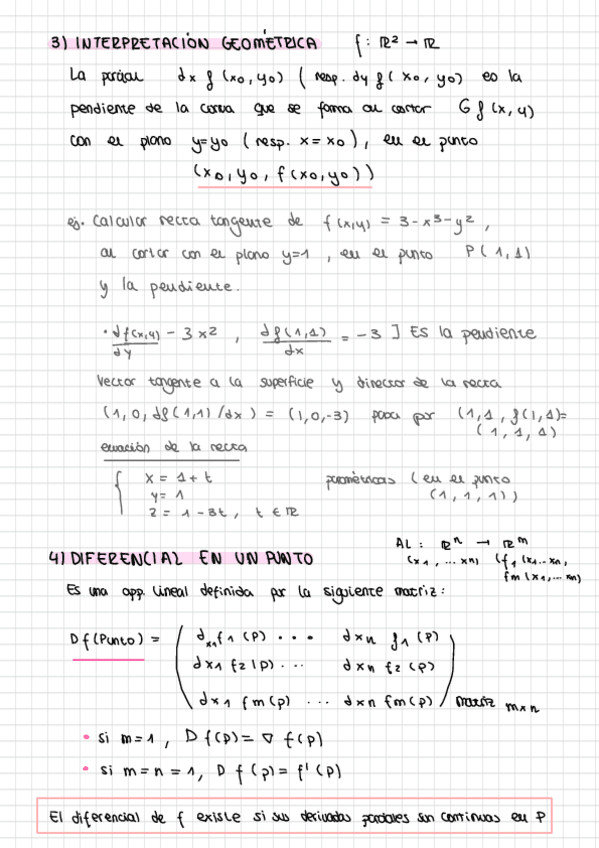 3) INTERPRETACIÓN GEOMÉTRICA f: ℝ² → ℝ
La parcial dx f (x0, y0) ( resp. dy f( x0, y0) es la
pendiente de la curva que se forma al cortar G f (x, y)
con el plano y=y0 ( resp. x = x0 ), en el punto
(x0, y0, f (x0, y0))
ej. Calcular recta tangente de f (x,y) = 3-x³-y²,
al cortar con el plano y=1, en el punto P(1,1)
y la pendiente.
· df(x,y)/dy - 3x², df(1,1)/dx = -3 ] Es la pendiente
Vector tangente a la superficie y director de la recta
(1, 0, df(1,1)/dx) = (1,0,-3) pasa por (1,1, f(1,1)=
(1, 1, 1)
ecuación de la recta
x = 1+t paramétricas (en el punto
y= 1 (1, 1, 1))
z = 1 - 3t, t ∈ ℝ
4) DIFERENCIAL EN UN PUNTO AL: ℝⁿ → ℝᵐ
(x1, ... xn) (f1 (x1... xn,
fm (x1, ... xn)
Es una app. lineal definida por la siguiente matriz:
Df(Punto) = ( dx1 f1 (P) · · · dxn f1 (P)
dx1 f2 (P) · · · dxn f2 (P)
dx1 fm (P) ... dxn fm (P) ) matriz mxn
• si m=1, D f(P) = ∇ f(P)
• si m=n=1, D f(P) = f'(P)
El diferencial de f existe si sus derivadas parciales son continuas en P